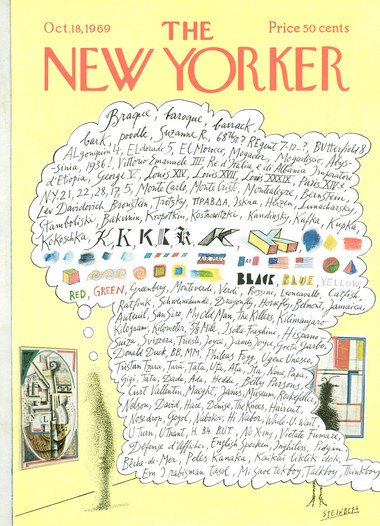 Oct. 18, 1969
THE
Price 50 cents
NEW YORKER
Braque, baroque, barrack,
bark, poodle, Suzanne R., 68th St? REgent 7-10..?, BUtterfield 8,
ALgonquin 4, ELdorado 5, El Morocco, Mogador, Mogadiscio, Abys-
sinia, 1936!, Vittorio Emanuele III Re d'Italia e di Albania Imperatore
d'Etiopia, George V, Louis XIV, Louis XVII, Louis XXXIX, Paris XIVe,
N.Y. 21, 22, 28, 17, 5, Monte Carlo, Monte Cristo, Montenegro, Bernstein,
Lev Davidovich Bronstein, Trotsky, ПРАВДА, Iskra, Herzen, Lunacharsky,
Stamboliski, Bakunin, Kropotkin, Kandinsky, Kafka, Kupka,
Kokoschka, K K K K K K
AIR MAIL
BLACK, BLUE, YELLOW,
RED, GREEN, Greenberg, Monteverdi, Verdi, Rossini, Leoncavallo, Catfish,
Ratfink, Schweinehunde, Dragonfly, Horsefly, Belmont, Jamaica,
Auteuil, San Siro, My Old Man, The Killers, Kilimanjaro
Kilogram, Kilometer, 5/8 Mile, Isotta Fraschini, Hispano
Suiza, Svizzera, Tristan Joyce, James Joyce, Greta Garbo,
Donald Duck, BB, MM, Phileas Fogg, Ugene Unesco,
Tristan Tzara, Tara, Tata, Uta, Ata, Ita, Nona, Papa,
Gigi, Tata, Dada, Ada, Hedda, Betty Parsons,
Curt Valentin, Maeght, Janis, Museum, Rockefeller,
Nelson, David, Hare, Denise, The Knees, Haircut,
Nosedrop, Gogol, Nabokov, Hi Nabor, While-U-wait
U Turn, U Thant, H. 84 BUT, No King, Vietato Fumare,
Défense d'afficher, English Spoken, Pidgin,
Bêche-de-Mer, Peles Kanaka, Kaikai liklik dok,
Em I rabisman tasol, Mi save tokboy, Talkboy, Thinkboy
STEINBERG